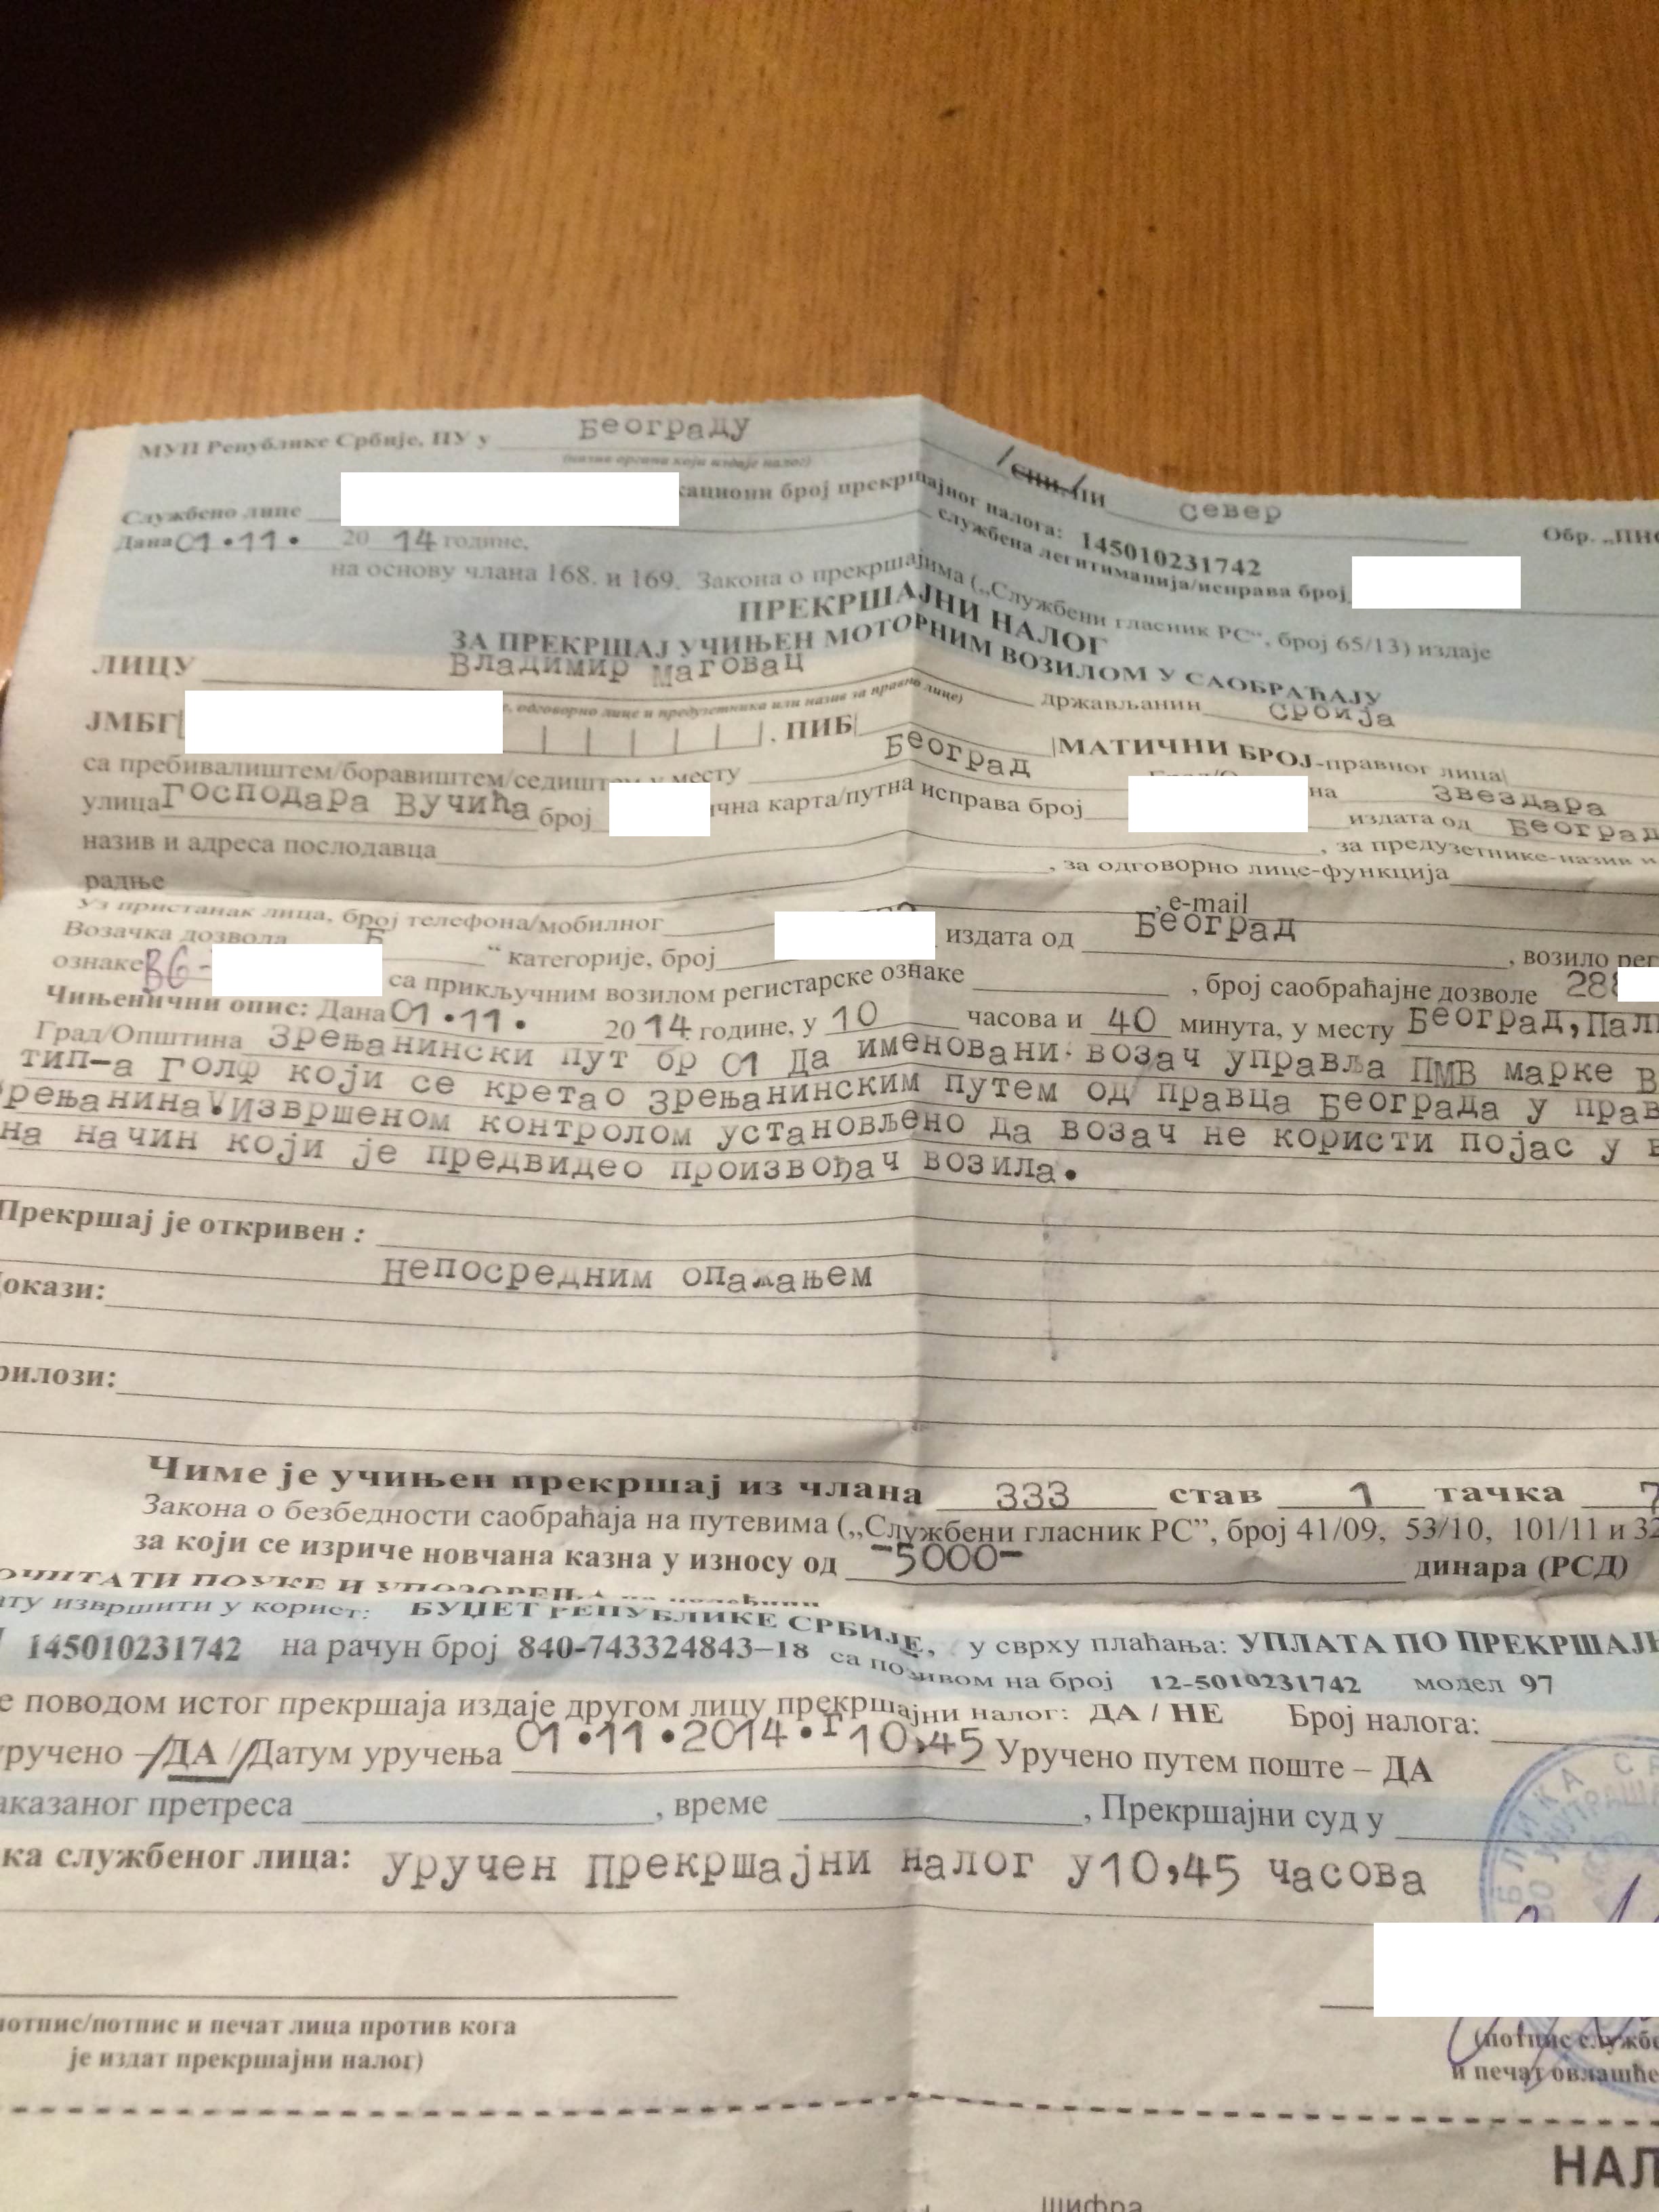 МУП Републике Србије, ПУ у Београду
(назив органа који издаје налог)
/СПИ,/ПИ Север
Обр. „ПНС
кациони број прекршајног налога: 145010231742
Службено лице
службена легитимација/исправа број
Дана 01.11. 20 14 године,
на основу члана 168. и 169. Закона о прекршајима („Службени гласник РС“, број 65/13) издаје
ПРЕКРШАЈНИ НАЛОГ
ЗА ПРЕКРШАЈ УЧИЊЕН МОТОРНИМ ВОЗИЛОМ У САОБРАЋАЈУ
ЛИЦУ Владимир Маговац
, одговорно лице и предузетника или назив за правно лице)
држављанин Србија
ЈМБГ , ПИБ МАТИЧНИ БРОЈ-правног лица
са пребивалиштем/боравиштем/седиштем у месту Београд на Звездара
улица Господара Вучића број ична карта/путна исправа број издата од Београд
назив и адреса послодавца , за предузетнике-назив и
радње , за одговорно лице-функција
Уз пристанак лица, број телефона/мобилног , e-mail
Возачка дозвола Б “ категорије, број издата од Београд , возило рег
ознаке BG- са прикључним возилом регистарске ознаке , број саобраћајне дозволе 288
Чињенични опис: Дана 01.11. 20 14 године, у 10 часова и 40 минута, у месту Београд, Пали
Град/Општина Зрењанински пут бр 01 Да именовани возач управља ПМВ марке В
тип-а Голф који се кретао Зрењанинским путем од правца Београда у прав
рењанина.Извршеном контролом установљено да возач не користи појас у в
на начин који је предвидео произвођач возила.
Прекршај је откривен :
Непосредним опажањем
окази:
рилози:
Чиме је учињен прекршај из члана 333 став 1 тачка 7
Закона о безбедности саобраћаја на путевима („Службени гласник РС”, број 41/09, 53/10, 101/11 и 32
за који се изриче новчана казна у износу од -5000- динара (РСД)
ОЧИТАТИ ПОУКЕ И УПОЗОРЕЊА
ату извршити у корист: БУЏЕТ РЕПУБЛИКЕ СРБИЈЕ, у сврху плаћања: УПЛАТА ПО ПРЕКРШАЈН
145010231742 на рачун број 840-743324843–18 са позивом на број 12-5010231742 модел 97
е поводом истог прекршаја издаје другом лицу прекршајни налог: ДА / НЕ Број налога:
уручено –/ДА // Датум уручења 01.11.2014.г 10,45 Уручено путем поште – ДА
аказаног претреса , време , Прекршајни суд у
ка службеног лица: уручен Прекршајни Налог у10,45 часова
потпис/потпис и печат лица против кога
је издат прекршајни налог)
(потпис службе
и печат овлашће
НАЛ
шифра